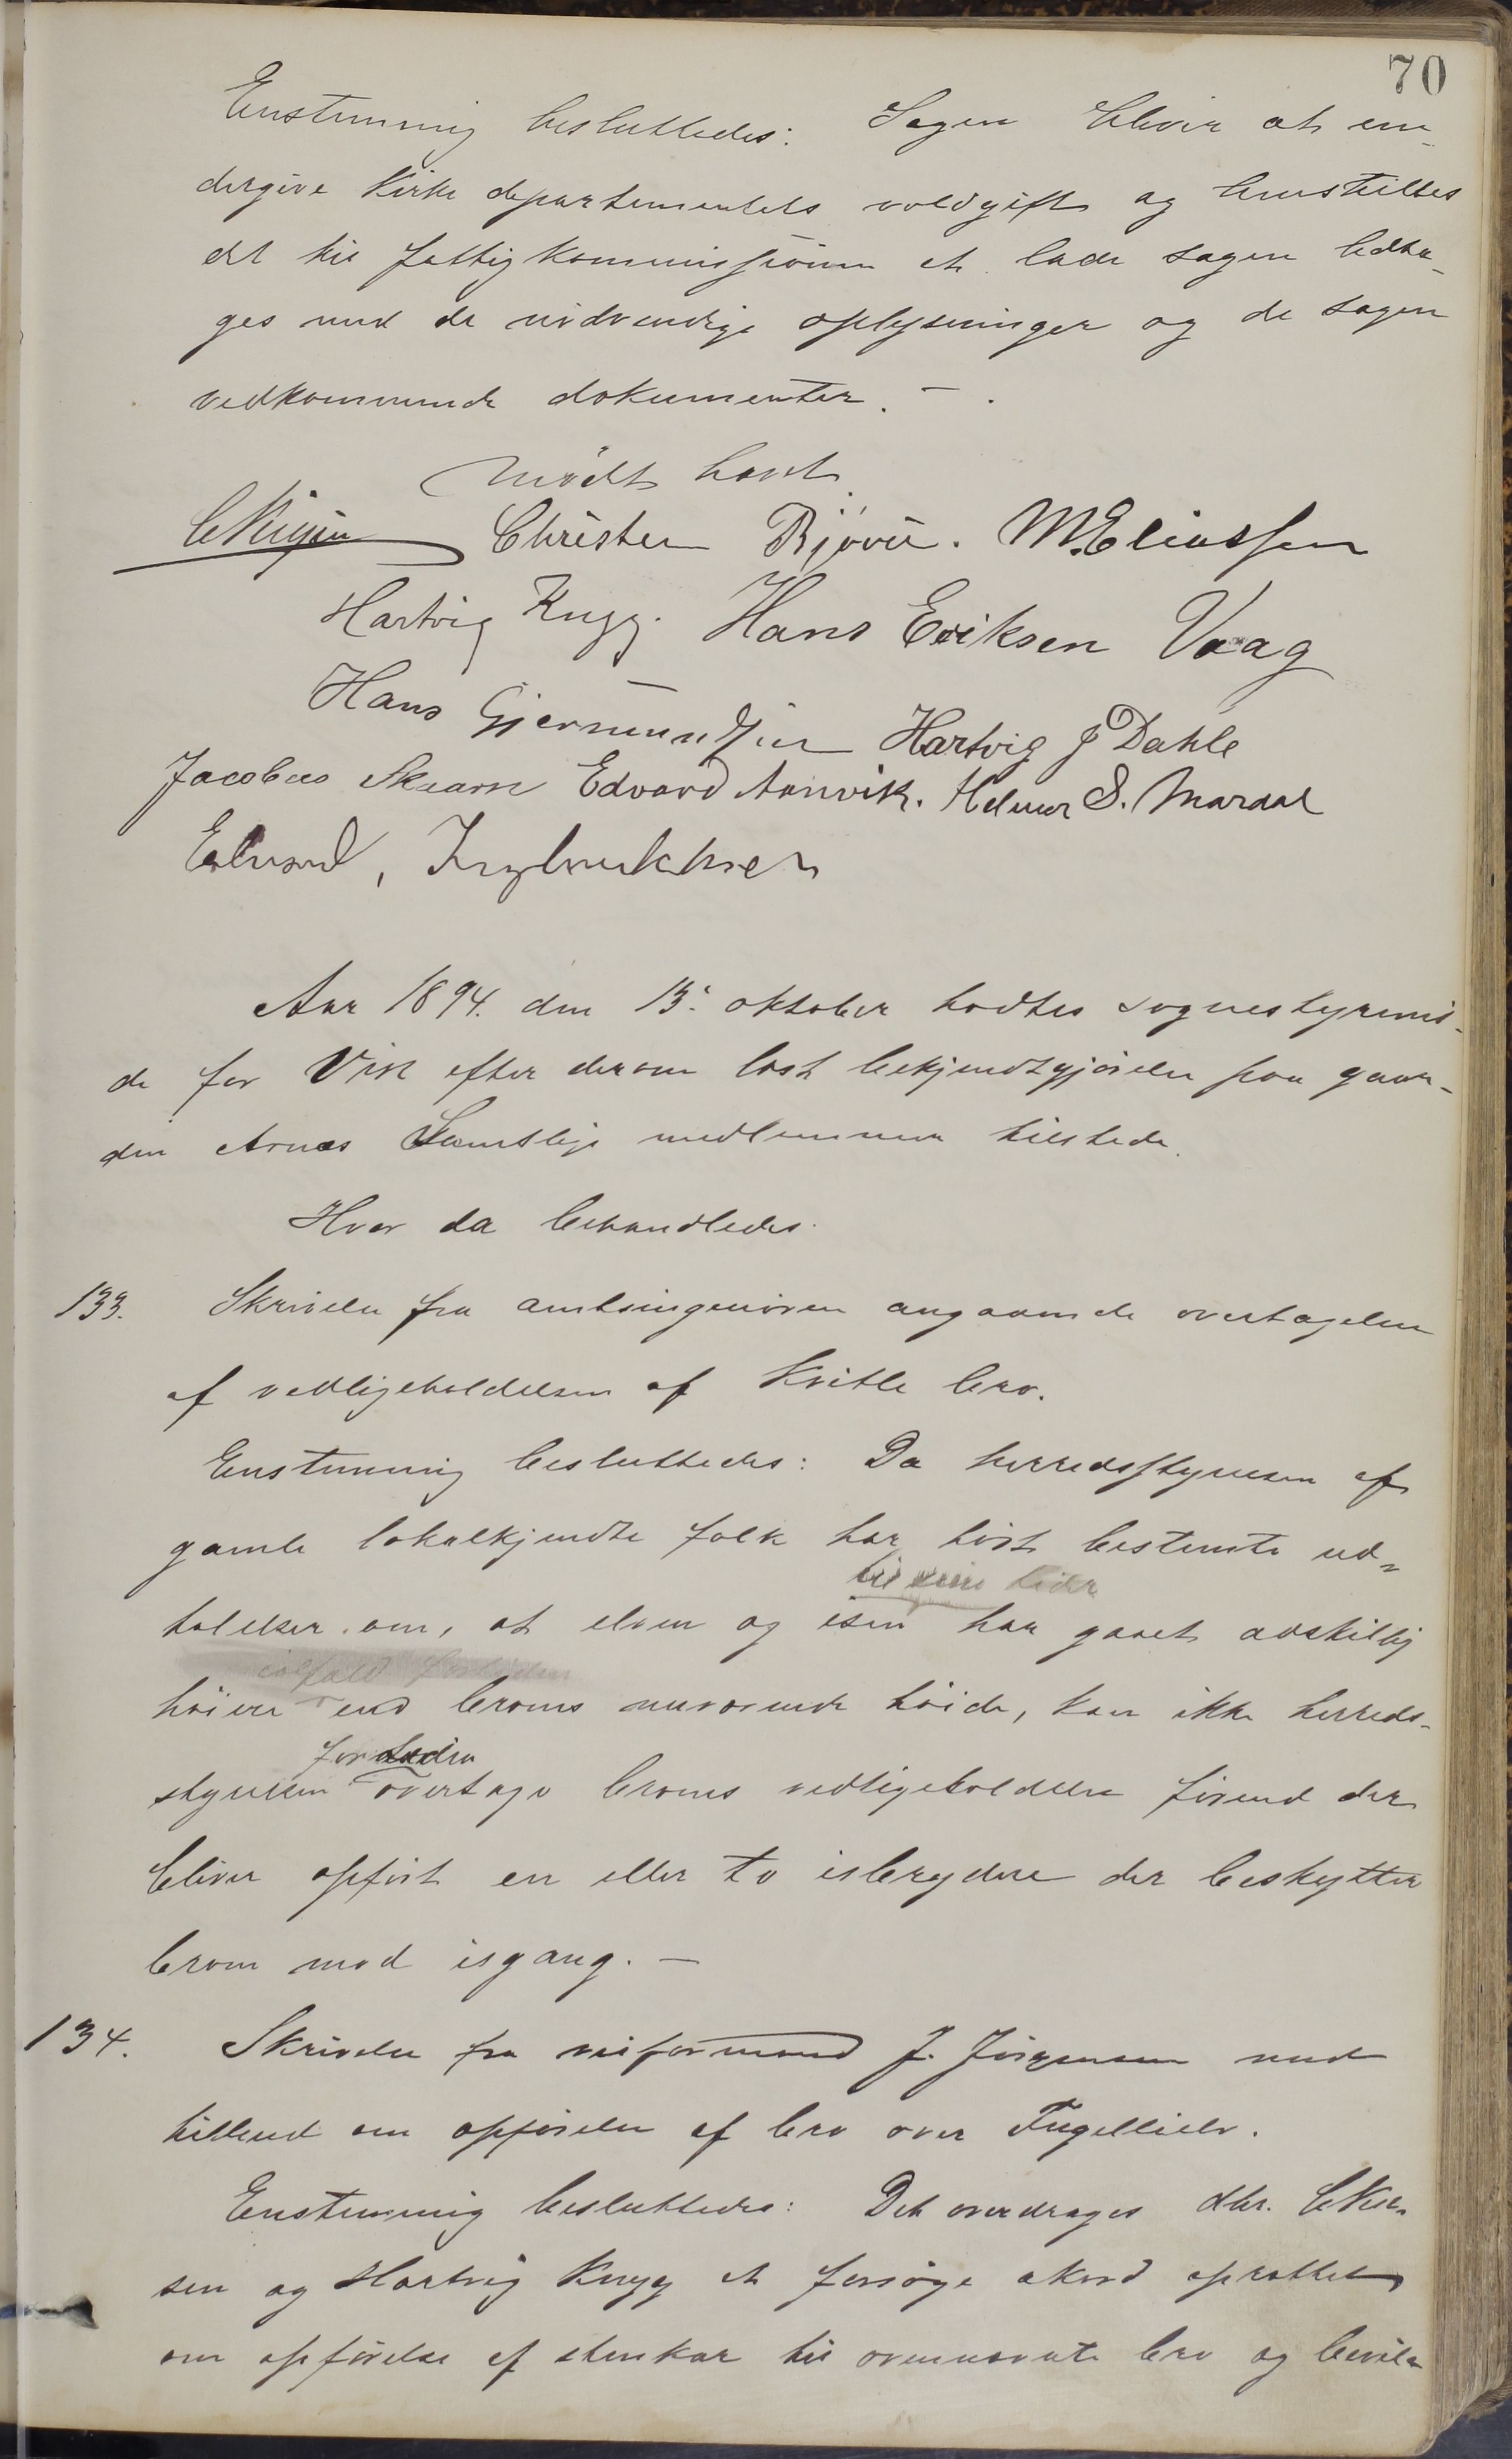 70
Enstemmig besluttedes: Sagen bliver at un-
dergive Kirkedepartementets voldgift og henstilles
det til fattigkommissionen at lade sagen ledsa-
ges med de nødvendige oplysninger og de sagen
vedkommende dokumenter. — .
Mødt hævet.
Christen Bjørü. M. Eliassen
Hartvig Krygg. Hans Eriksen Vaag
Hans Gjermundsen Hartvig J Dahle
Jacobus Skaarn Edvard Aanvik. Helmer S. Mardal
Edvard, Ingebrichtsen
Aar 1894. den 13. oktober holdtes sognestyremø-
de for Vik efter derom læst bekjendtgjørelse paa gaar-
den Arnæs Samtlige medlemmer tilstede.
Hvor da behandledes.
133. Skrivelse fra amtsingeniøren angaaende overtagelsen
af vedligeholdelsen af Kvitle bro.
Enstemmig besluttedes: Da herredsstyrelsen af
gamle lokalkjendte folk har hørt bestemte ud-
til sine tider
talelser om, at elven og isen har gaaet adskillig
ialfald
høiere end broens nuværende høide, kan ikke herreds-
for
styrelsen overtage broens vedligeholdelse førend der
bliver opført en eller to isbrydere der beskytter
broen mod isgang. —
134. Skrivelse fra veiformand J. Jørgensen med
tilbud om opførelse af bro over Fugellielv.
Enstemmig besluttedes: Det overdrages dhr.
sen og Hartvig Krygg at forsøge akord oprettet
om opførelse af stenkar til ovennævnte bro og bevil-